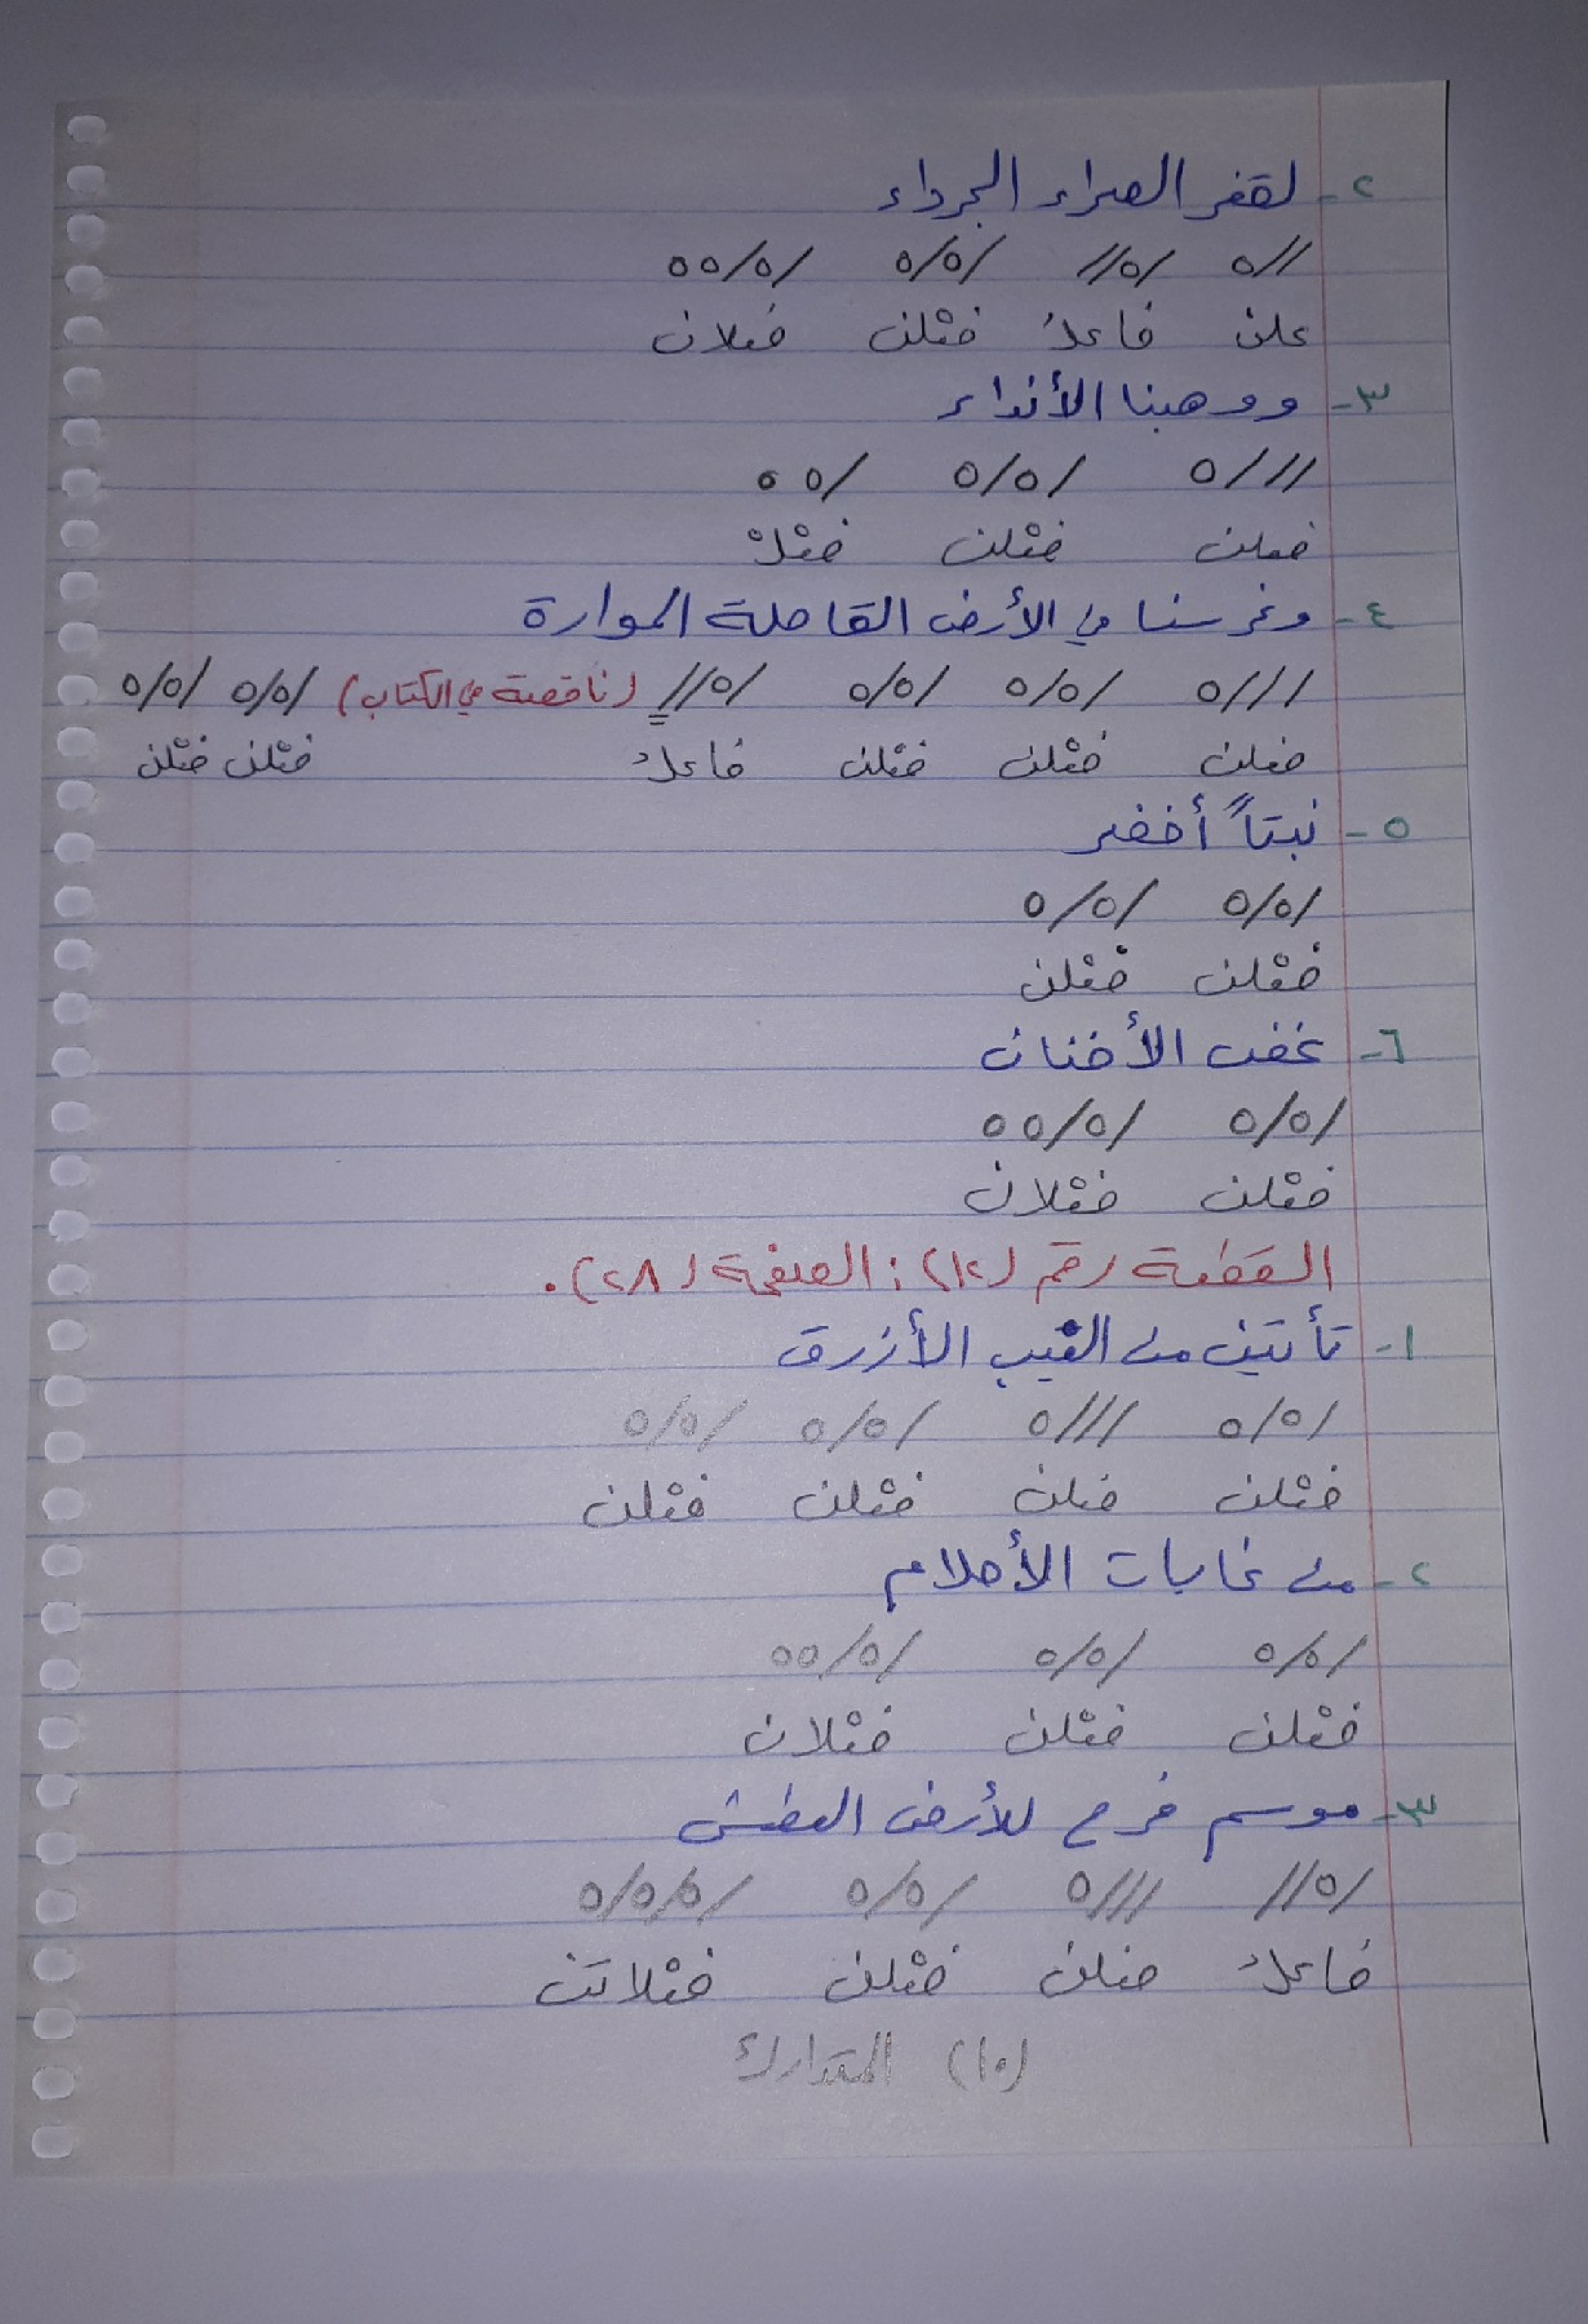 ٢- لقفر الصحراء الجرداء
//ه /ه// /ه/ه /ه/ه ه
علن فاعلُ فعْلن فعلان
٣- ووهبنا الأنداء
///ه /ه/ه /ه ه
فعلن فعْلن فعْلْ
٤- وغرسنا في الأرض القاحلة الموارة
///ه /ه/ه /ه/ه /ه// (ناقصة في الكتاب) /ه/ه /ه/ه
فعلن فعْلن فعْلن فاعلُ فعْلن فعْلن
٥- نبتاً أخضر
/ه/ه /ه/ه
فعْلن فعْلن
٦- غض الأفنان
/ه/ه /ه/ه ه
فعْلن فعْلان
القطعة رقم (١٢): الصفحة (٢٨).
١- تأتين من الغيب الأزرق
/ه/ه ///ه /ه/ه /ه/ه
فعْلن فعلن فعْلن فعْلن
٢- من غابات الأحلام
/ه/ه /ه/ه /ه/ه ه
فعْلن فعْلن فعْلان
٣- موسم فرح للأرض العطشى
/ه// ///ه /ه/ه /ه/ه/ه
فاعلُ فعلن فعْلن فعْلاتن
(١٠) المتدارك